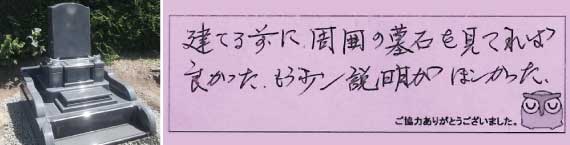 建てる前に周囲の墓石を見てれば
良かった。もう少シ説明がほしかった、
ご協力ありがとうございました。